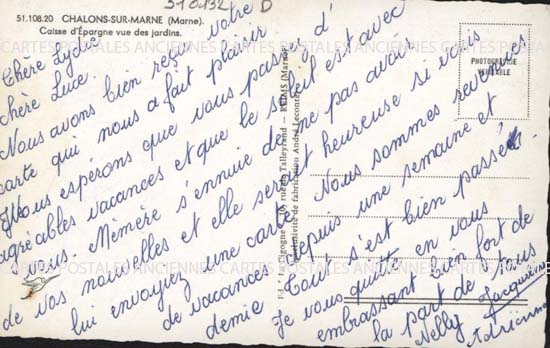 310132 D
51.108.20 CHALONS-SUR-MARNE (Marne).
Caisse d'Épargne vue des jardins.
PHOTOGRAPHIE
VÉRITABLE
Chère Lydie
chère Luce.
Nous avons bien reçu votre
carte qui nous a fait plaisir
Nous espérons que vous passez d'
agréables vacances et que le soleil est avec
vous. Mémère s'ennuie de ne pas avoir
de vos nouvelles et elle serait heureuse si vous
lui envoyiez une carte. Nous sommes revenues
de vacances depuis une semaine et
demie Tout s'est bien passé.
Je vous quitte en vous
embrassant bien fort de
la part de tous
Nelly Jacqueline
Adrienne
"La Cigogne" rue de Talleyrand - REIMS (Marne)
Exclusivité de fabrication André Leconte
CARTES POSTALES ANCIENNES CARTES POSTALES ANCIENNES